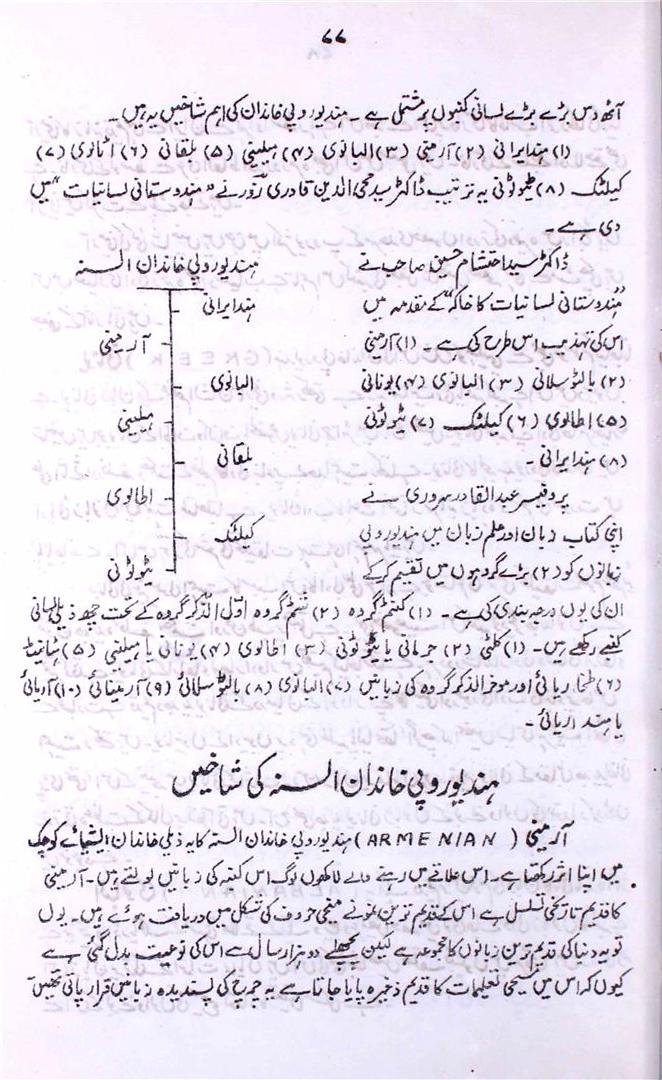 ۷۷
آٹھ دس بڑے بڑے لسانی کنبوں پر مشتمل ہے۔ ہند یوروپی خاندان کی اہم شاخیں یہ ہیں۔
(۱) ہند ایرانی (۲) آرمنی (۳) البانوی (۴) ہیلینی (۵) بلقانی (۶) اطالوی (۷)
کیلٹک (۸) ٹیوٹونی یہ ترتیب ڈاکٹر سید محی الدین قادری زور نے "ہندوستانی لسانیات" میں
دی ہے۔
ڈاکٹر سید احتشام حسین صاحب نے
"ہندوستانی لسانیات کا خاکہ" کے مقدمہ میں
اس کی تہذیب اس طرح کی ہے۔ (۱) آرمنی
(۲) بالٹو سلائی (۳) البانوی (۴) یونانی
(۵) اطالوی (۶) کیلٹک (۷) ٹیوٹونی
(۸) ہند ایرانی۔
پروفیسر عبدالقادر سروری نے
اپنی کتاب زبان اور علم زبان میں ہند یوروپی
زبانوں کو (۲) بڑے گروہوں میں تقسیم کر کے
ہند یوروپی خاندان السنہ
ہند ایرانی
آرمینی
البانوی
ہیلینی
بلقانی
اطالوی
کیلٹک
ٹیوٹونی
ان کی یوں درجہ بندی کی ہے۔ (۱) کنٹم گروہ (۲) شٹم گروہ اوّل الذکر گروہ کے تحت چھ ذیلی لسانی
کنبے رکھے ہیں۔ (۱) کلٹی (۲) جرمانی یا ٹیوٹونی (۳) اطالوی (۴) یونانی یا ہیلینی (۵)
(۶) اور موخر الذکر گروہ کی زبانیں (۷) البانوی (۸) بالٹو سلائی (۹) آرمینائی (۱۰) آریائی
یا ہند آریائی۔
ہند یوروپی خاندان السنہ کی شاخیں
آرمینی (ARMENIAN) ہند یوروپی خاندان السنہ کا یہ ذیلی خاندان ایشیائے کوچک
میں اپنا اثر رکھتا ہے۔ اس علاقے میں رہنے والے لاکھوں لوگ اس کنبہ کی زبانیں بولتے ہیں۔ آرمینی
کا قدیم تاریخی تسلسل ہے اس کے قدیم ترین نمونے میخی حروف کی شکل میں دریافت ہوئے ہیں۔ یوں
تو یہ دنیا کی قدیم ترین زبانوں کا مجموعہ ہے لیکن پچھلے دو ہزار سال سے اس کی نوعیت بدل گئی ہے
کیوں کہ اس میں مسیحی تعلیمات کا قدیم ذخیرہ پایا جاتا ہے یہ چرچ کی پسندیدہ زبانیں قرار پائی تھیں